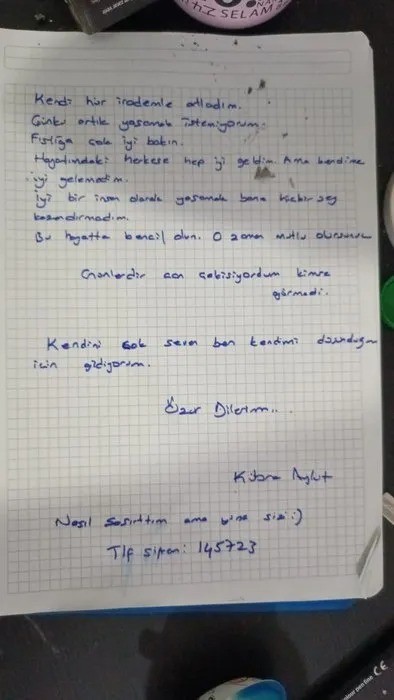 SELAM
Kendi hür irademle atladım.
Çünkü artık yaşamak istemiyorum.
Fıstığa çok iyi bakın.
Hayatımdaki herkese hep iyi geldim. Ama kendime
iyi gelemedim.
İyi bir insan olarak yaşamak bana hiçbir şey
kazandırmadım.
Bu hayatta bencil olun. O zaman mutlu olursunuz
Günlerdir acı çekiyordum kimse
görmedi.
Kendini çok seven ben kendimi düşündüğüm
için gidiyorum.
Özür Dilerim..
Kübra Aykut
Nasıl şaşırttım ama yine sizi :)
Tlf şifrem: 145723